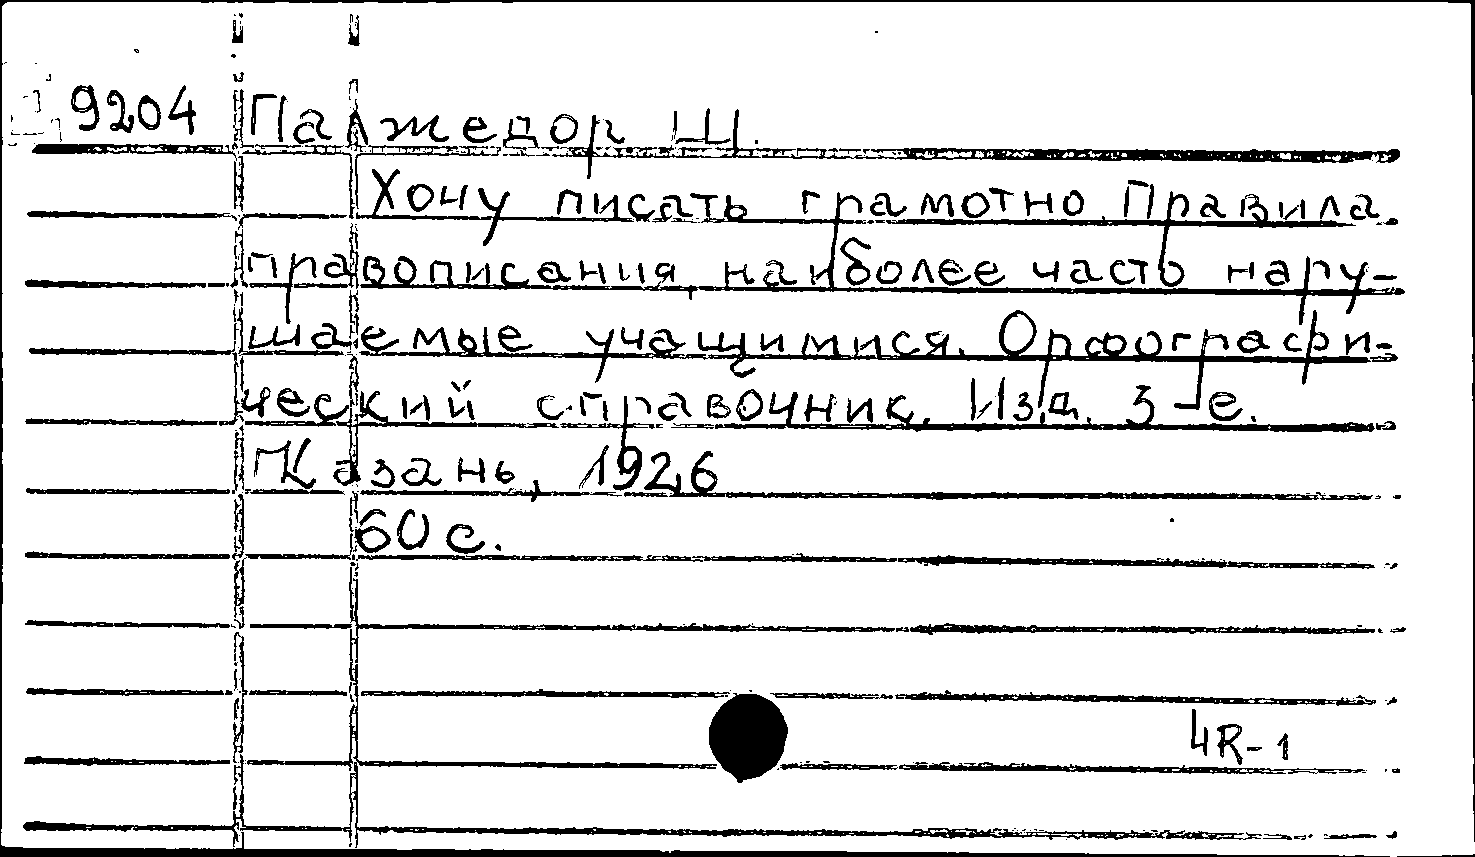 9204 Палжедор Ш.
Хочу писать грамотно. Правила
правописания, наиболее часто нару-
шаемые учащимися. Орфографи-
ческий справочник. Изд. 3-е.
Казань, 1926
60 с.
4R-1